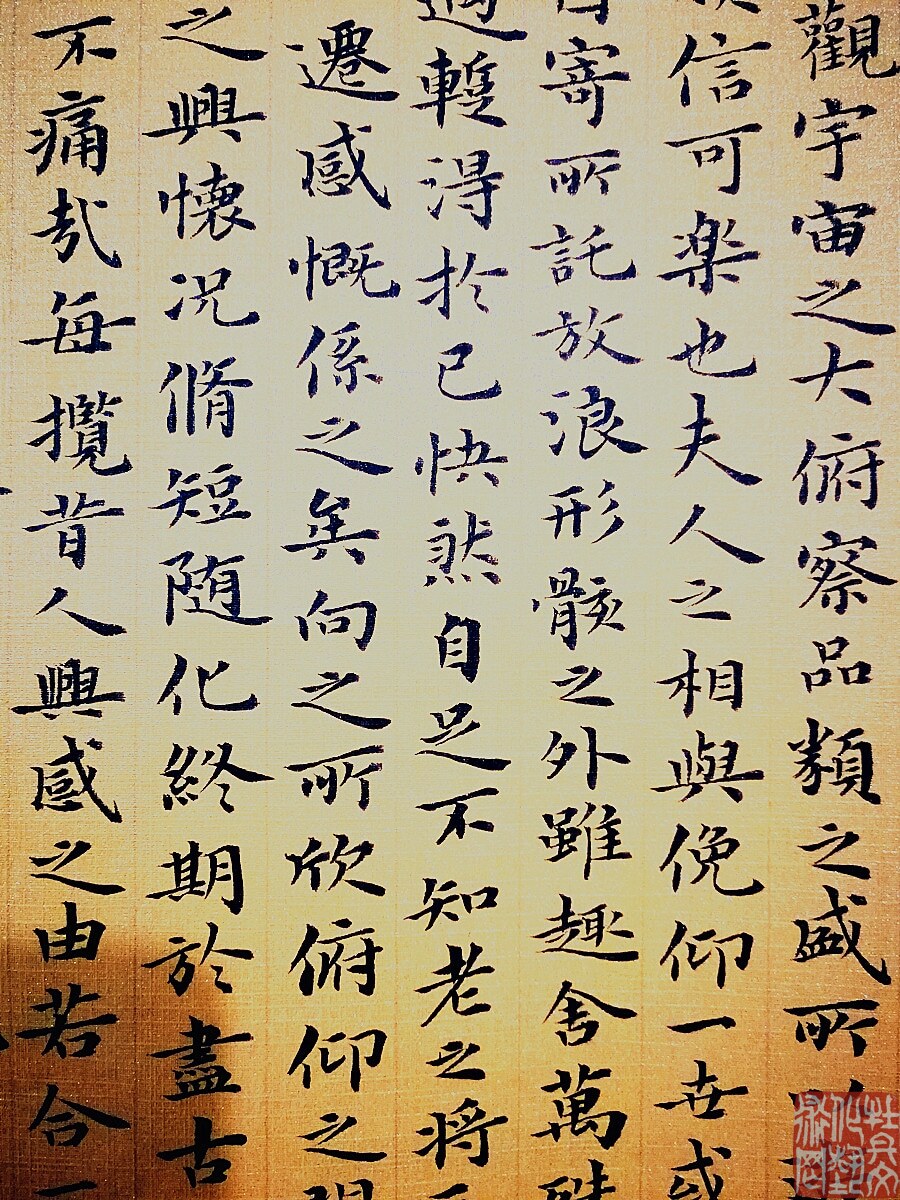 觀宇宙之大俯察品類之盛所以
信可樂也夫人之相與俛仰一世或
寄所託放浪形骸之外雖趣舍萬殊
遇暫得於己快然自足不知老之將
遷感慨係之矣向之所欣俯仰之間
之興懷況脩短隨化終期於盡古
不痛哉每攬昔人興感之由若合一